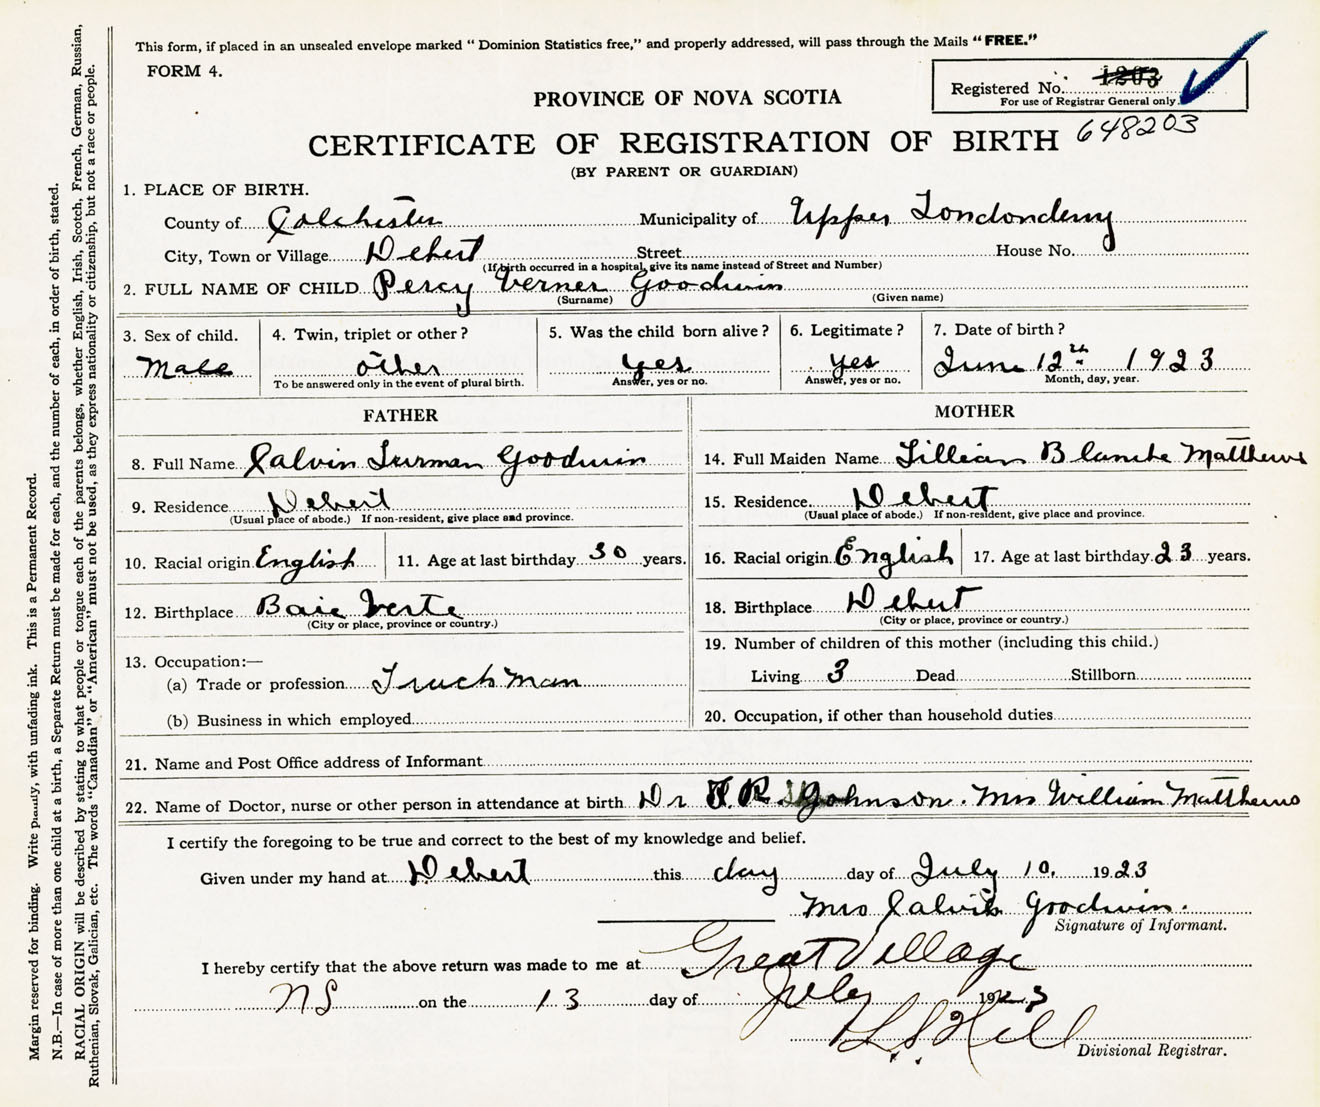 This form, if placed in an unsealed envelope marked "Dominion Statistics free," and properly addressed, will pass through the Mails "FREE."
FORM 4.
Registered No. 1203
For use of Registrar General only
PROVINCE OF NOVA SCOTIA
648203
CERTIFICATE OF REGISTRATION OF BIRTH
(BY PARENT OR GUARDIAN)
1. PLACE OF BIRTH.
County of Colchester Municipality of Upper Londonderry
City, Town or Village Debert Street House No.
(If birth occurred in a hospital, give its name instead of Street and Number)
2. FULL NAME OF CHILD Percy Verner Goodwin
(Surname) (Given name)
3. Sex of child. 4. Twin, triplet or other? 5. Was the child born alive? 6. Legitimate? 7. Date of birth?
Male other yes yes June 12th 1923
To be answered only in the event of plural birth. Answer, yes or no. Answer, yes or no. Month, day, year.
FATHER
8. Full Name Calvin Turman Goodwin
9. Residence Debert
(Usual place of abode.) If non-resident, give place and province.
10. Racial origin English 11. Age at last birthday 30 years.
12. Birthplace Baie Verte
(City or place, province or country.)
13. Occupation:—
(a) Trade or profession Truckman
(b) Business in which employed
MOTHER
14. Full Maiden Name Lillian Blanche Matthews
15. Residence Debert
(Usual place of abode.) If non-resident, give place and province.
16. Racial origin English 17. Age at last birthday 23 years.
18. Birthplace Debert
(City or place, province or country.)
19. Number of children of this mother (including this child.)
Living 3 Dead Stillborn
20. Occupation, if other than household duties
21. Name and Post Office address of Informant
22. Name of Doctor, nurse or other person in attendance at birth Dr Johnson. Mrs William Matthews
I certify the foregoing to be true and correct to the best of my knowledge and belief.
Given under my hand at Debert this day day of July 10, 1923
Mrs Calvin Goodwin.
Signature of Informant.
I hereby certify that the above return was made to me at Great Village
NS on the 13 day of July 1923
Hill
Divisional Registrar.
Margin reserved for binding. Write plainly, with unfading ink. This is a Permanent Record.
N.B.—In case of more than one child at a birth, a Separate Return must be made for each, and the number of each, in order of birth, stated.
RACIAL ORIGIN will be described by stating to what people or tongue each of the parents belongs, whether English, Irish, Scotch, French, German, Russian,
Ruthenian, Slovak, Galician, etc. The words "Canadian" or "American" must not be used, as they express nationality or citizenship, but not a race or people.